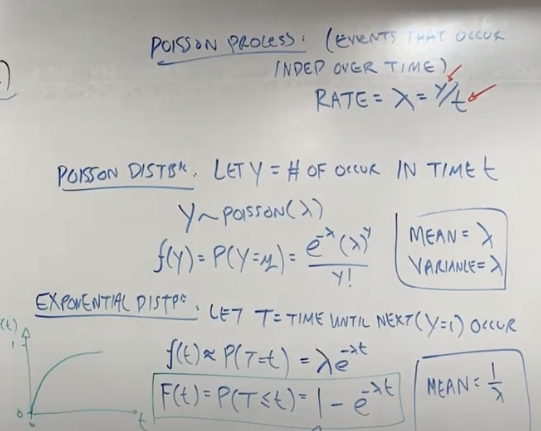 POISSON PROCESS: (EVENTS THAT OCCUR
INDEP OVER TIME)
RATE = λ = Y/t
POISSON DISTBⁿ. LET Y = # OF OCCUR IN TIME t
Y~POISSON(λ)
f(y) = P(Y=y) = e^-λ (λ)^y / y!
MEAN = λ
VARIANCE = λ
EXPONENTIAL DISTBⁿ: LET T = TIME UNTIL NEXT (Y=1) OCCUR
f(t) ≈ P(T=t) = λe^-λt
F(t) = P(T≤t) = 1 - e^-λt
MEAN = 1/λ
(t)
1
0
t